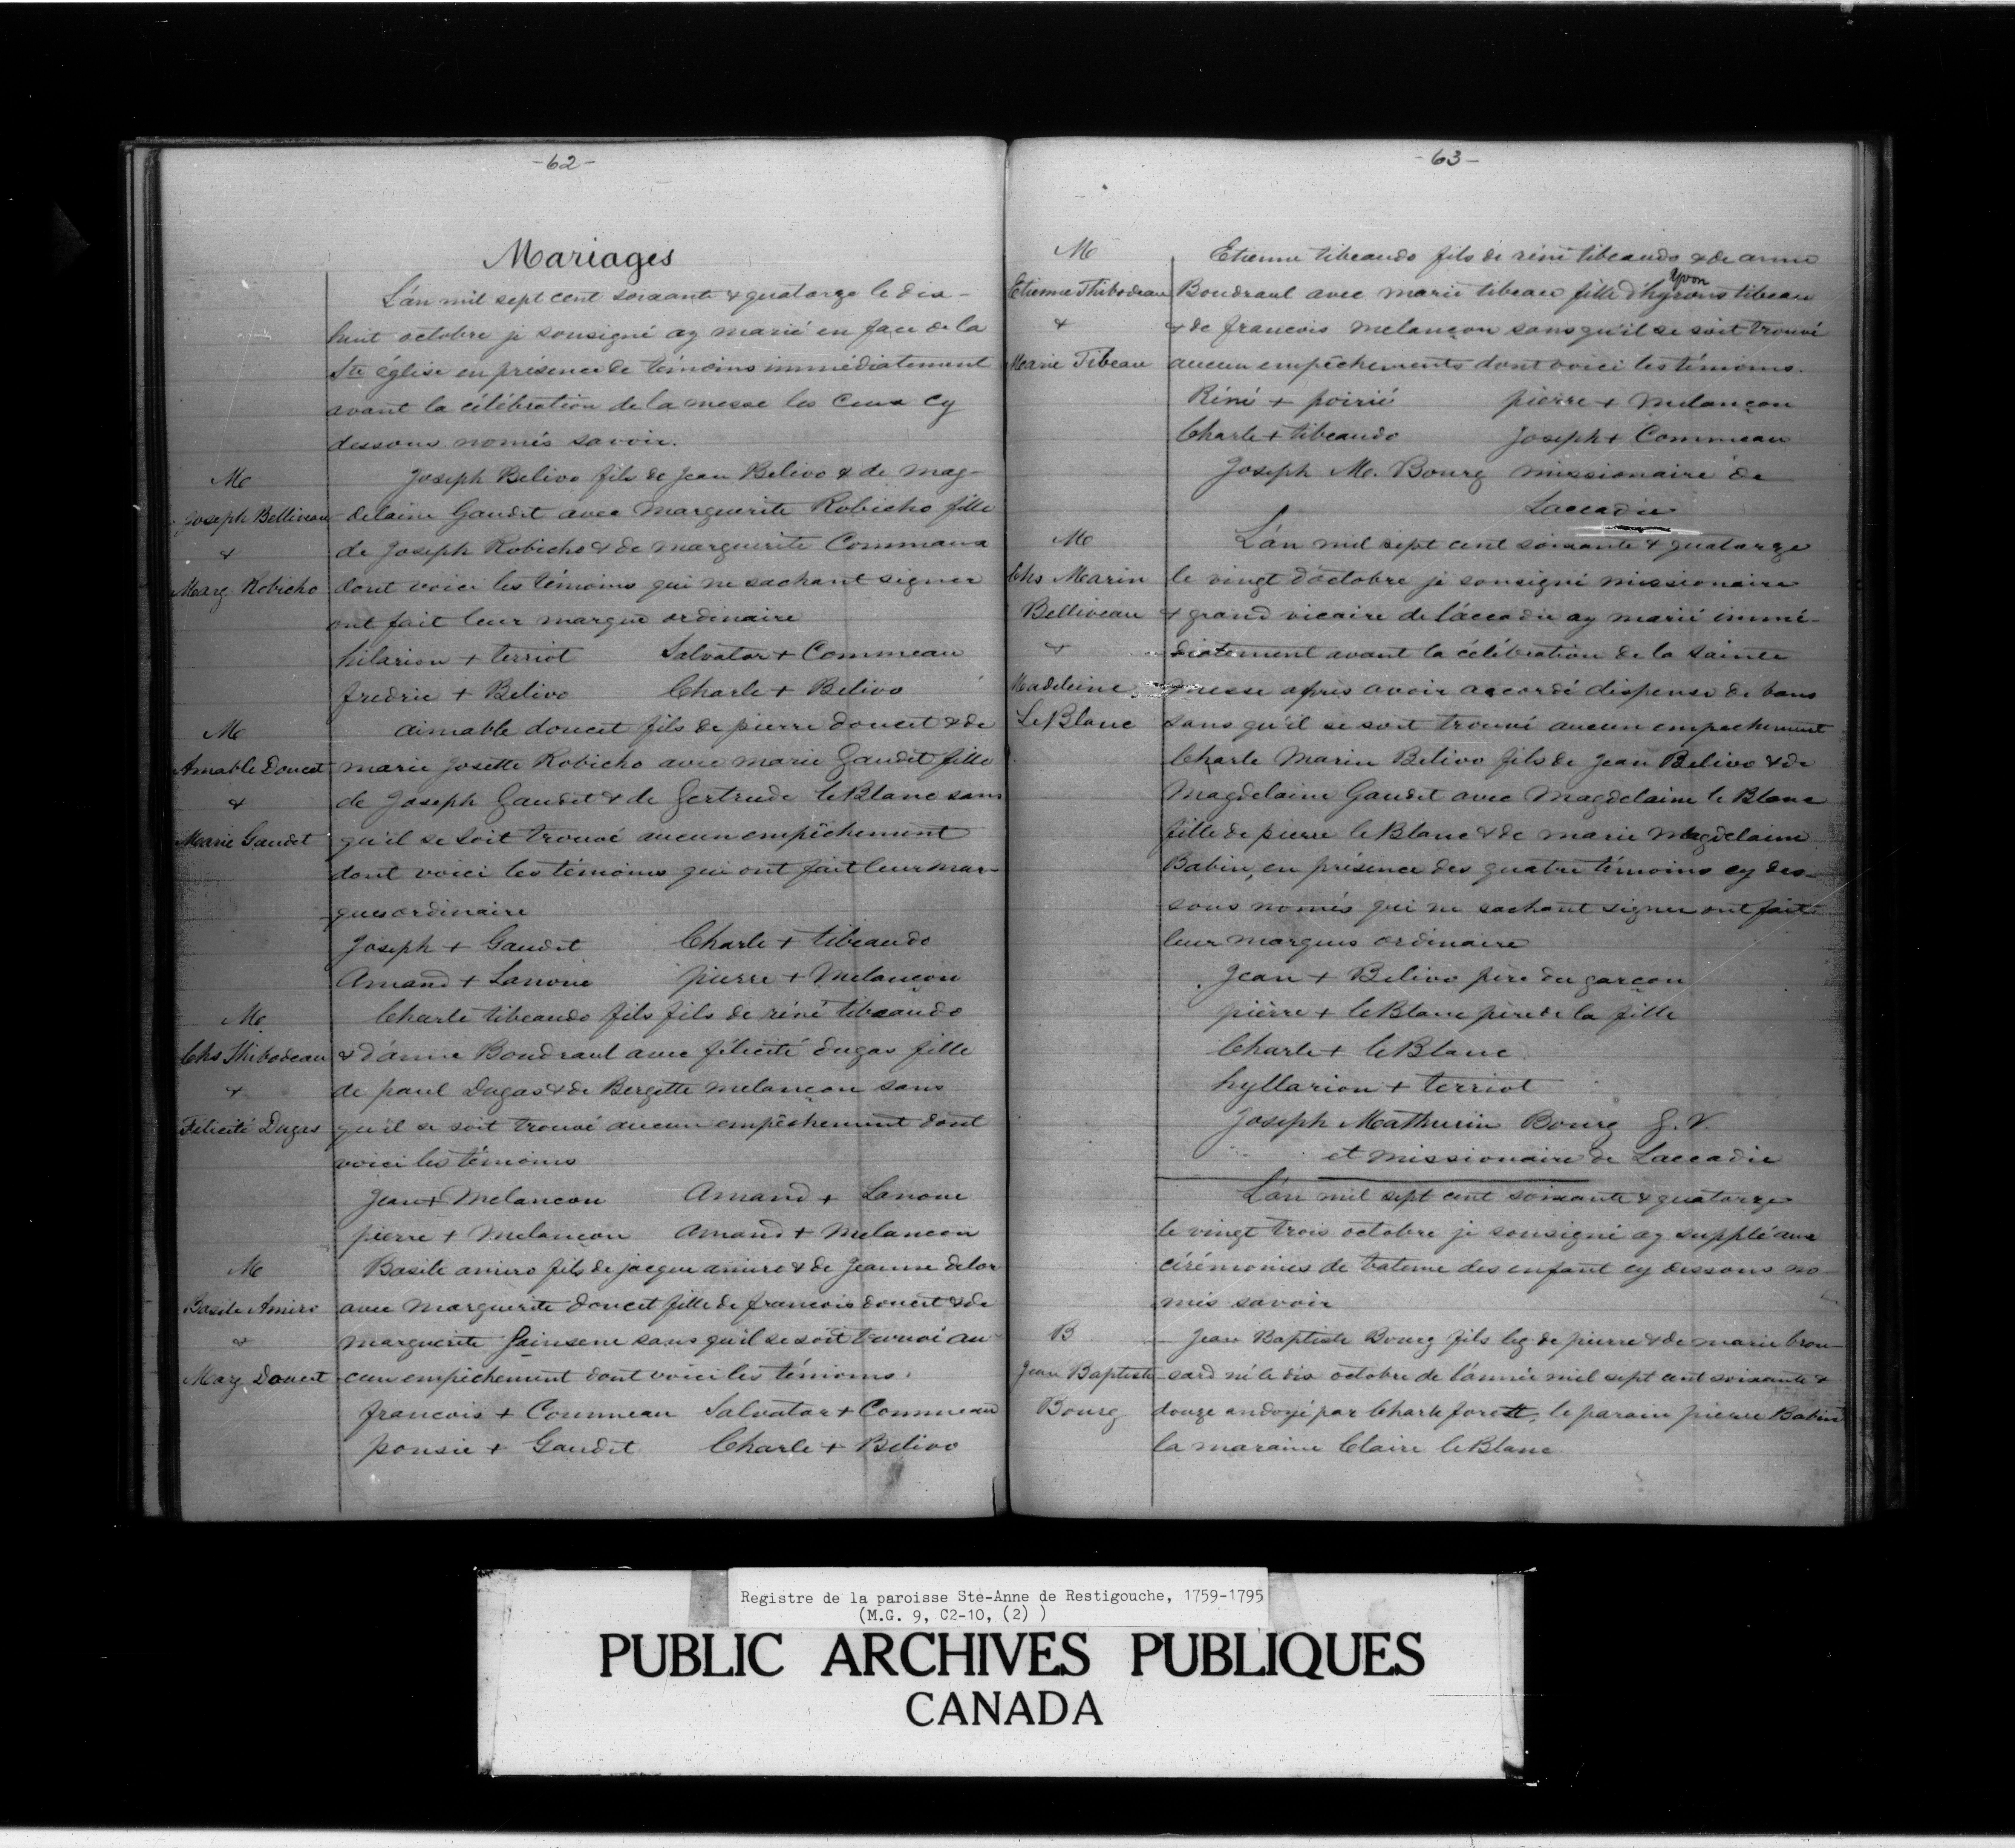 -62-
Mariages
L'an mil sept cent soixante & quatorze le dix-
huit octobre je sousigné ay marié en face de la
Ste église en présence de témoins immédiatement
avant la célébration de la messe les Ceux Cy
dessous només savoir.
M
Joseph Belliveau
&
Marg. Robicho
Joseph Belivo fils de Jean Belivo & de mag-
delaine Gaudet avec Marguerite Robicho fille
de Joseph Robicho & de marguerite Commaux
dont voici les témoins qui ne sachant signer
ont fait leur marque ordinaire
hilarion + terriot Salvator + Commeau
fredric + Belivo Charle + Belivo
M
Amable Doucet
&
Marie Gaudet
aimable doucet fils de pierre doucet & de
marie Josette Robicho avec marie Gaudet fille
de Joseph Gaudet & de Gertrude leBlanc sans
qu'il se soit trouvé aucun empêchement
dont voici les témoins qui ont fait leur mar-
ques ordinaire
Joseph + Gaudet Charle + tibeaudo
Amand + Lanoue pierre + Melançon
M
Chs Thibodeau
&
Félicité Dugas
Charle tibeaudo fils fils de réné tibeaudo
& d'anne Boudraul avec félicité dugas fille
de paul Dugas & de Bergette melançon sans
qu'il se soit trouvé aucun empêchement dont
voici les témoins
Jean + Melancon Amand + Lanoue
pierre + Melancon Amand + Melancon
M
Basile Amiro
&
Marg Doucet
Basile amiro fils de jacque amiro & de Jeanne delor
avec Marguerite doucet fille de francois doucet & de
marguerite Jainsene sans qu'il se soit trouvé au
cun empêchement dont voici les témoins.
francois + Coummeau Salvator + Commeau
ponsie + Gaudet Charle + Belivo
-63-
M
Etienne Thibodeau
&
Marie Tibeau
Etienne tibeaudo fils de réné tibeaudo & de anne
Yvon
Boudraul avec marie tibeau fille d'hyrons tibeau
& de francois melançon sans qu'il se soit trouvé
aucun empêchements dont voici les témoins.
Réné + poirié pierre + Melançon
Charle + tibeaudo Joseph + Commeau
Joseph M. Bourg missionaire de
Laccadie
M
Chs Marin
Belliveau
&
Madeleine
LeBlanc
L'an mil sept cent soixante & quatorze
le vingt d'octobre je sousigné missionaire
& grand vicaire de l'áccadie ay marié immé-
diatement avant la célébration de la sainte
messe après avoir accordé dispense de bans
sans qu'il se soit trouvé aucun empechement
Charle Marin Belivo fils de Jean Belivo & de
Magdelaine Gaudet avec Magdelaine le Blanc
fille de pierre le Blanc & de marie Magdelaine
Babin, en présence des quatre témoins cy des-
sous només qui ne sachant signer ont fait
leur marques ordinaire
Jean + Belivo père du garçon
pièrre + leBlanc père de la fille
Charle + leBlanc
hyllarion + terriot
Joseph Mathurin Bourg G. V.
et missionaire de Laccadie
L'an mil sept cent soixante & quatorze
le vingt trois octobre je sousigné ay supplé aux
cérémonies de bateme des enfant cy dessous no-
més savoir
B
Jean Baptiste
Bourg
Jean Baptiste Bourg fils leg de pierre & de marie brou-
sard né le dix octobre de l'année mil sept cent soixante &
douze andoyé par Charle forett, le parain pierre Babin
la maraine Claire leBlanc
Registre de la paroisse Ste-Anne de Restigouche, 1759-1795
(M.G. 9, C2-10, (2) )
PUBLIC ARCHIVES PUBLIQUES
CANADA